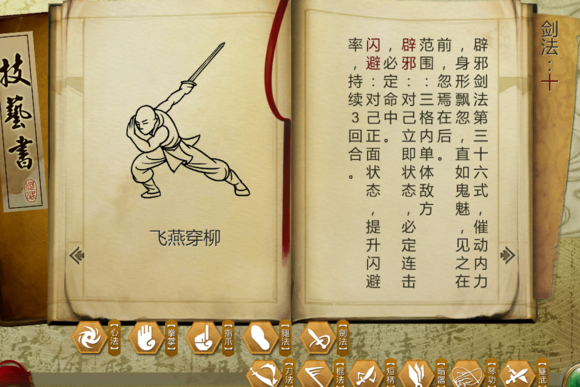 技藝書
飞燕穿柳
剑法：十
辟邪剑法第三十六式，催动内力
，身形飘忽，直如鬼魅，见之在
前，忽焉在后。
范围：三格内单体敌方
辟邪：对己立即状态，必定连击
，必定命中。
闪避：对己正面状态，提升闪避
率，持续3回合。
【心法】
【拳掌】
【指爪】
【腿法】
【剑法】
【刀法】
【棍法】
【短柄】
【暗器】
【琴功】